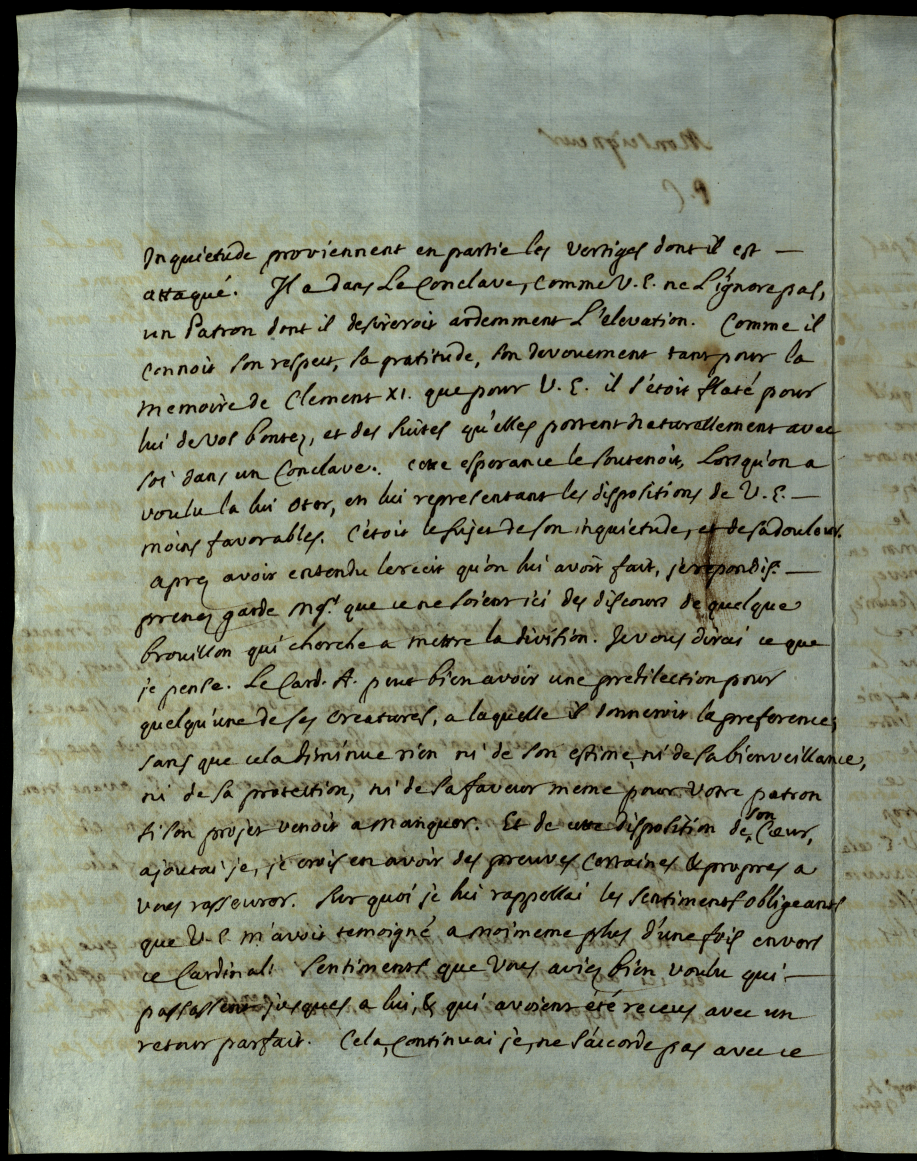 Inquietude proviennent en partie les vertiges dont il est —
attaqué. Il a dans le Conclave, comme V. E. ne l'ignore pas,
un Patron dont il desireroit ardemment l'elevation. Comme il
connoit son respect, sa gratitude, son devouement tant pour la
memoire de Clement XI. que pour V. E. il s'étoit flaté pour
lui de vos bontez, et des suites qu'elles portent naturellement avec
soi dans un Conclave. Cette esperance le soutenoit, lorsqu'on a
voulu la lui oter, en lui representant les dispositions de V. E. —
moins favorables. C'étoit le sujet de son inquietude, et de sa douleur.
aprez avoir entendu le recit qu'on lui avoit fait, je repondis. —
prenez garde Mgr. que ce ne soient ici des discours de quelque
brouillon qui cherche a mettre la division. Je vous dirai ce que
je pense. Le Card. A. peut bien avoir une predilection pour
quelqu'une de ses creatures, a laquelle il donneroit la preference,
sans que cela diminue rien ni de son estime, ni de sa bienveillance,
ni de sa protection, ni de sa faveur meme pour votre patron
si son projet venoit a manquer. Et de cette disposition de son Cœur,
ajoutai je, je crois en avoir des preuves certaines & propres a
vous rasseurer. Sur quoi je lui rappellai les sentiments obligeants
que V. E. m'avoit temoigné a moi meme plus d'une fois envers
ce Cardinal: sentiments que vous aviez bien voulu qui —
passassent jusques a lui, & qui avoient été receus avec un
retour parfait. Cela, continuai je, ne s'accorde pas avec ce
Monseigneur